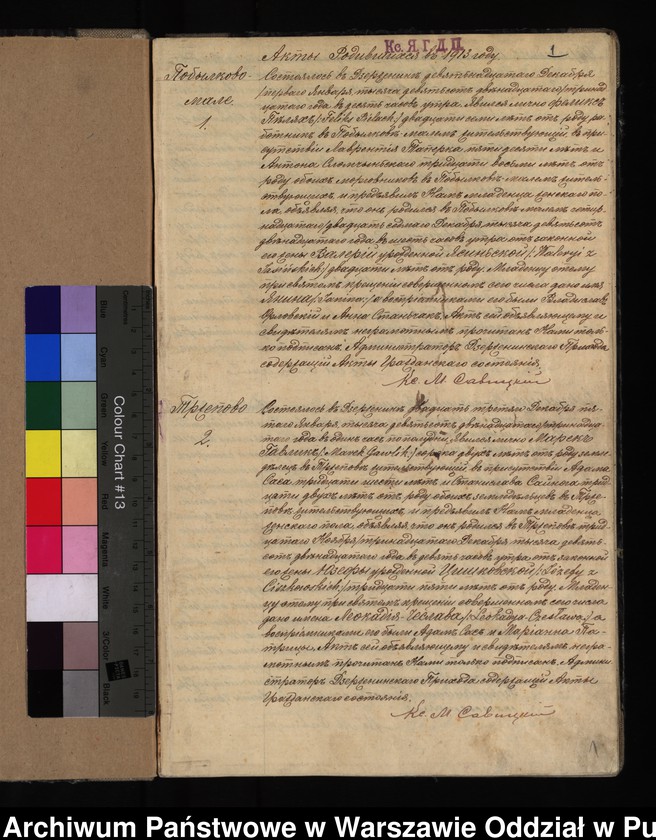 Кс. Я. Г. Д. П.
1
Акты Родившихся въ 1913 году
Побылково
малe.
1.
Состоялось въ Дзержениъ девятнадцатаго Декабря
/перваго Января, тысяча девятьсотъ двѣнадцатаго/тринад
цатаго года въ десять часовъ утра. Явился лично Феликсъ
двадцати семи лѣтъ отъ роду, ра
ботникъ въ Побылковѣ маломъ жительствующій, въ при
сутствіи Лаврентія пятидесяти лѣтъ и
Антона тридцати восьми лѣтъ отъ
роду обоихъ въ Побылковѣ маломъ житель
ствующихъ, и предъявилъ Намъ младенца женскаго по
ла, объявляя, что онъ родился въ Побылковѣ маломъ
надцатаго/двадцать седьмаго Декабря, тысяча девятьсотъ
двѣнадцатаго года, въ шесть часовъ утра отъ законной
его жены Валеріи урожденной /Waleryi z
двадцати лѣтъ отъ роду. Младенцу этому
при святомъ крещеніи совершенномъ сего числа дано имя
Янина/Janina/, а воспріемниками его были Владиславъ
Орловскій и Анна Станчакъ. Актъ сей объявляющему и
свидѣтелямъ неграмотнымъ прочитанъ Нами толь
ко подписанъ. Администраторъ Прихода
содержащій Акты Гражданскаго состоянія.
Кс. М Савицкій
Тржепово
2.
Состоялось въ двадцать третьяго Декабря пя-
таго Января, тысяча девятьсотъ двѣнадцатаго/тринадца
таго года въ часъ по полудни. Явился лично Марекъ
Гавликъ/Marek Gawlik/, сорока двухъ лѣтъ отъ роду земле
дѣлецъ въ Тржеповѣ жительствующій, въ присутствіи Адама
Саса тридцати шести лѣтъ и Станислава трид
цати двухъ лѣтъ отъ роду обоихъ земледѣльцевъ въ Трже
повѣ жительствующихъ, и предъявилъ Намъ младенца
женскаго пола, объявляя, что онъ родился въ Тржеповѣ трид
цатаго Ноября/тринадцатаго Декабря, тысяча девять
сотъ двѣнадцатаго года въ девять часовъ утра, отъ законной
его жены Юзефы урожденной /Józefy z
тридцати пяти лѣтъ отъ роду. Младен
цу этому при святомъ крещеніи совершенномъ сего числа
дано имена Леокадія-Чеслава/Leokadya-Czesława/, а
воспріемниками его были Адамъ Сасъ и Маріанна Па-
трицы. Актъ сей объявляющему и свидѣтелямъ негра-
мотнымъ прочитанъ Нами только подписанъ. Админи
страторъ Прихода содержащій Акты
Гражданскаго состоянія.
Кс. М Савицкій
Colour Chart #13
Blue
Cyan
Green
Yellow
Red
Magenta
White
3/Color
Black
Centimetres
Inches
Archiwum Państwowe w Warszawie Oddział w Pu